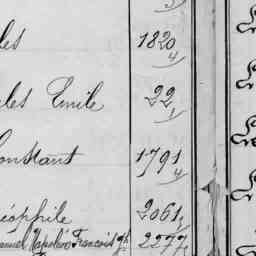 les 1820/4
les Emile 22/1
Constant 1791/4
éophile 2061/
anuel Napoléon François 2277/